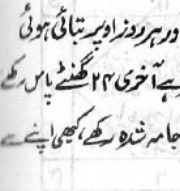 ور ہر روز اوپر بتائی ہوئی
ہے آخری ۲۴ گھنٹے پاس رکھے
جامہ شدہ رکھے، کبھی اپنے سے